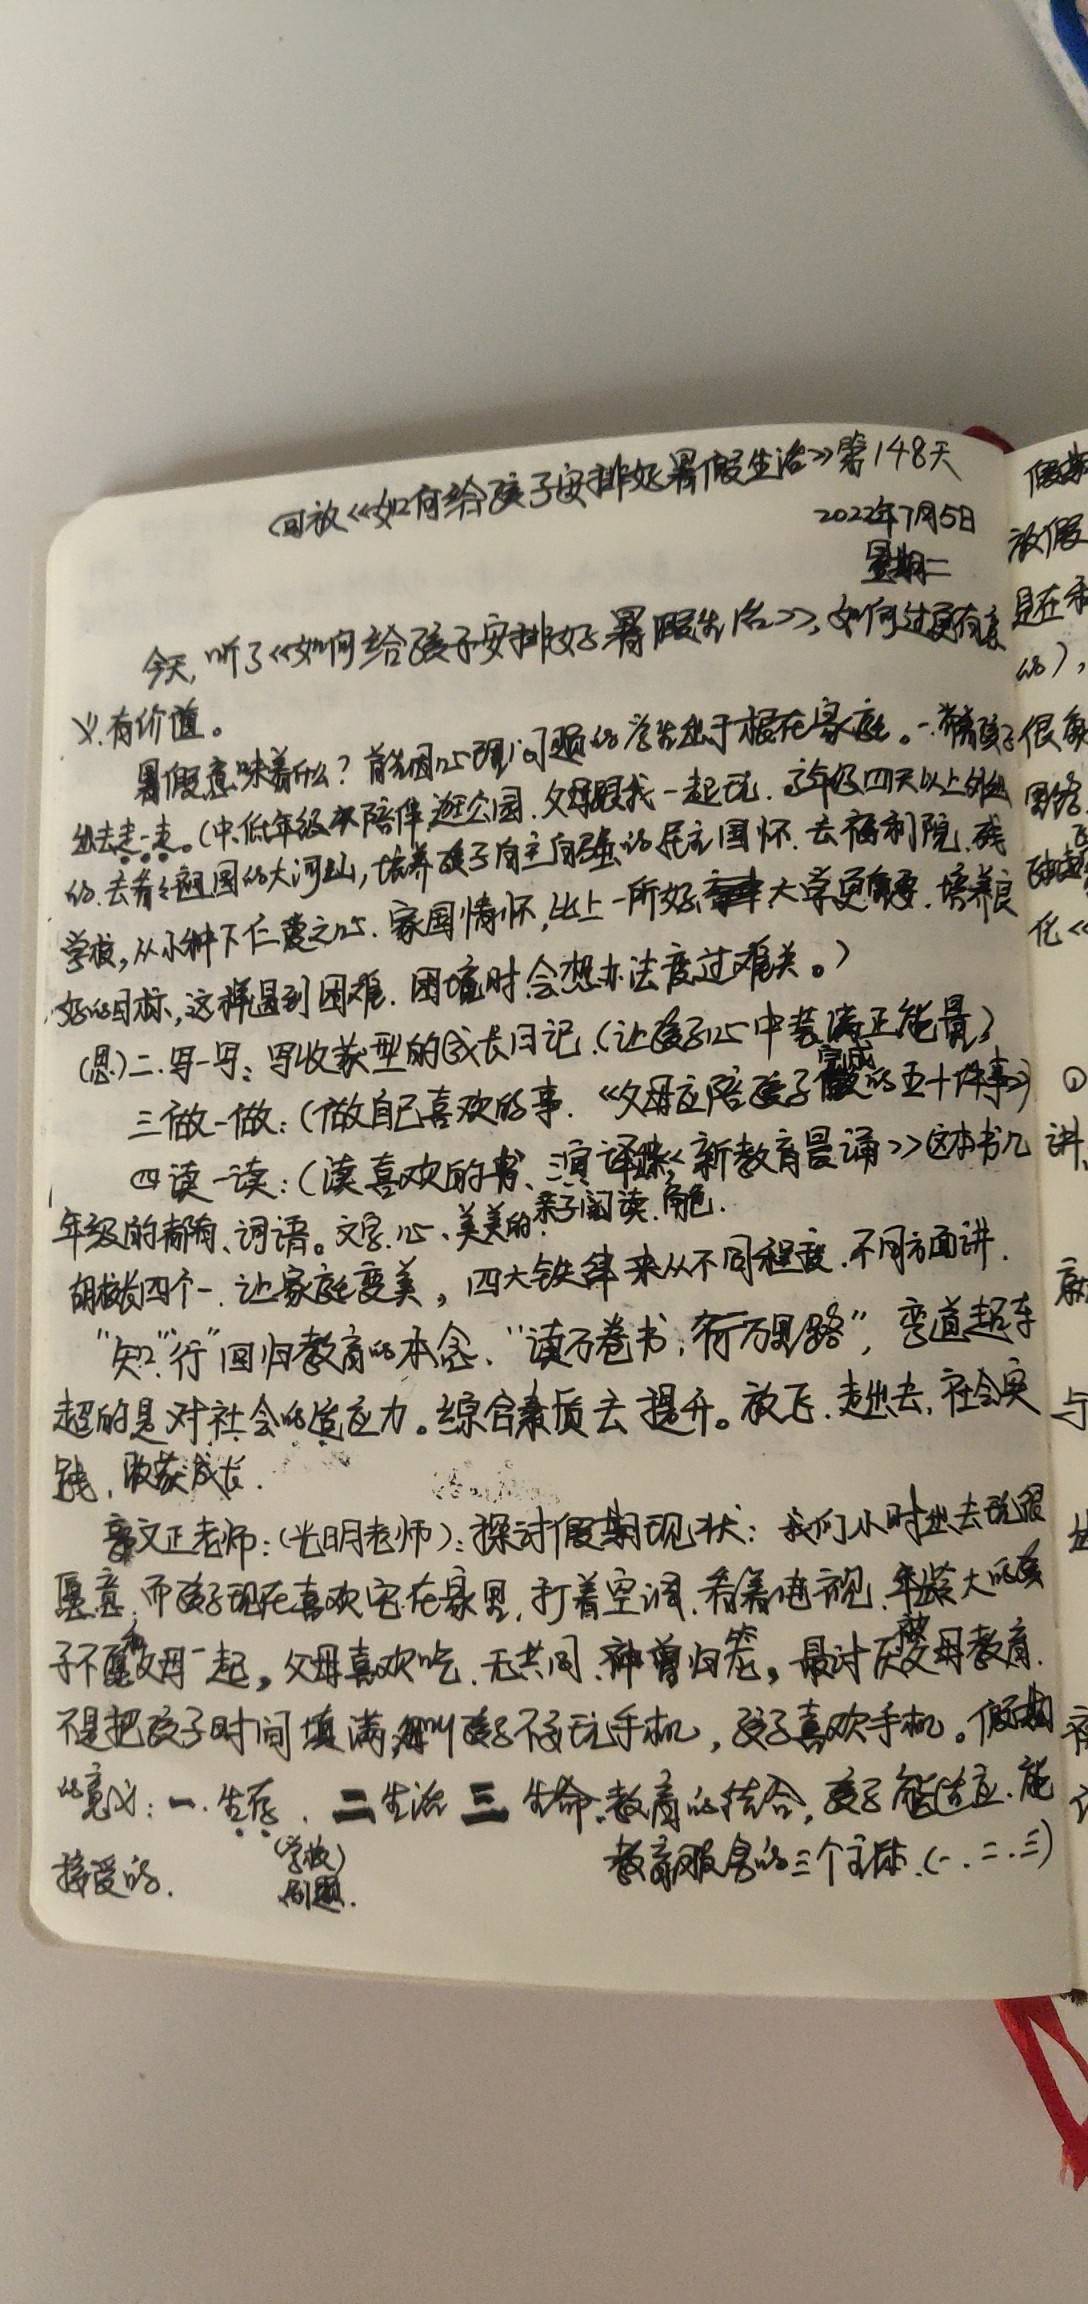 回放《如何给孩子安排好暑假生活》第148天
2022年7月5日
星期二
今天,听了《如何给孩子安排好暑假生活》,如何过更有意
义.有价值。
暑假意味着什么?首先因心理问题的学生出于根在家庭。一.带孩子
出去走一走。(中.低年级 陪伴逛公园.父母跟我一起玩.高年级四天以上外出
的.去看看祖国的大河山,培养孩子自主自强的民主国怀.去福利院.残
学校,从小种下仁爱之心.家国情怀,比上一所好 大学更重要.培养良
好的目标,这样遇到困难.困境时.会想办法度过难关。)
(恩)二.写一写:写收获型的成长日记.(让孩子心中装满正能量)
三做一做:(做自己喜欢的事.《父母应陪孩子完成的五十件事》)
四读一读:(读喜欢的书、演译 《新教育晨诵》这本书几
年级的都有、词语。文字.心、美美的.亲子阅读.角色.
胡校长四个一.让家庭变美,四大铁律来从不同程度.不同方面讲.
"知""行"回归教育的本念、"读万卷书;行万里路",弯道超车
超的是对社会的适应力。综合素质去提升。放飞.走出去,社会实
践,收获成长.
文正老师:(光明老师):探讨假期现状:我们小时出去玩很
愿意,而孩子现在喜欢宅在家里,打着空调.看着电视.年龄大的孩
子不愿和父母一起,父母喜欢吃.无共同. 归 。最讨厌被父母教育.
不是把孩子时间填满, 叫孩子不玩手机,孩子喜欢手机。假期
的意义:一.生存.二生活 三 生命.教育的结合,孩子能适应.能
接受的.
(学校)
刷题.
教育服务的三个主体.(一.二.三)
假期
放假
是在
的),
很
网络
化《
①
讲
与